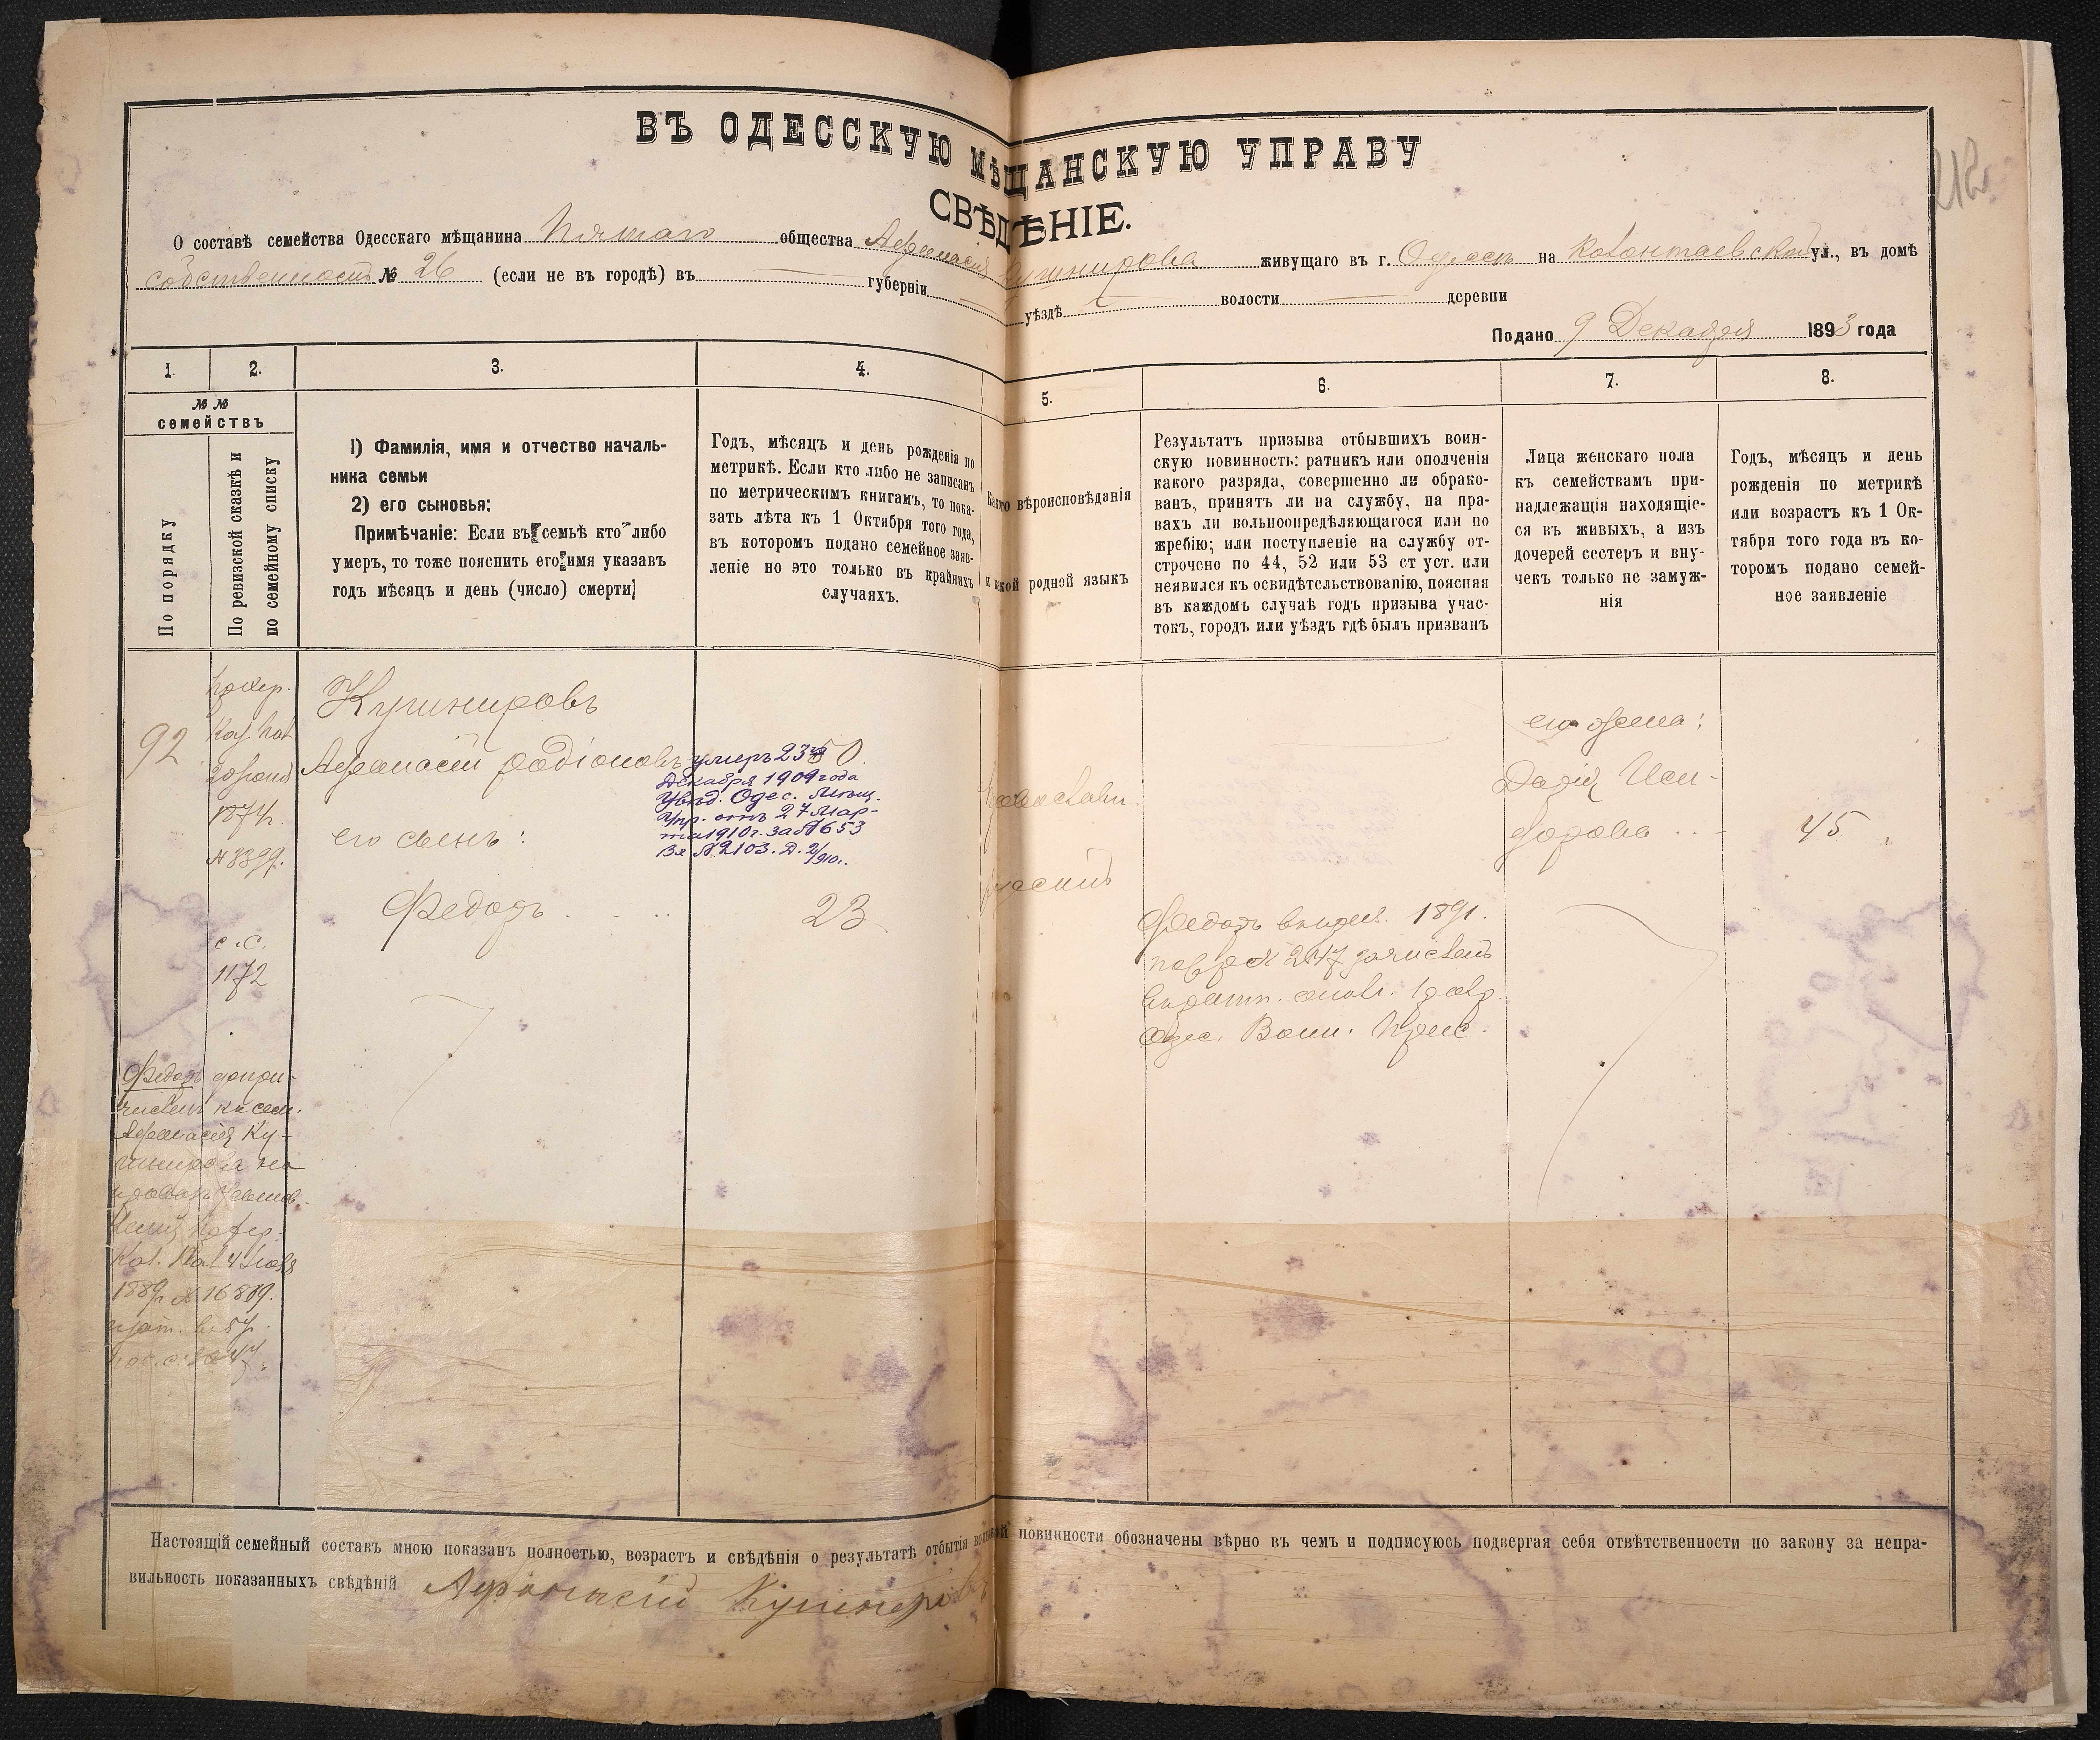 212
ВЪ ОДЕССКУЮ МѢЩАНСКУЮ УПРАВУ
СВѢДѢНІЕ.
О составѣ семейства Одесскаго мѣщанина Пятаго общества Афанасія Кушнирова живущаго въ г. Одессѣ на Колонтаевской ул., въ домѣ
собственномъ № 26 (если не въ городѣ) въ губерніи уѣздѣ волости деревни
Подано 9 Декабря 1893 года
1. 2. 3. 4. 5. 6. 7. 8.
№ №
семействъ
По порядку
По ревизской сказкѣ и
по семейному списку
1) Фамилія, имя и отчество началь-
ника семьи
2) его сыновья:
Примѣчаніе: Если въ семьѣ кто либо
умеръ, то тоже пояснить его имя указавъ
годъ мѣсяцъ и день (число) смерти
Годъ, мѣсяцъ и день рожденія по
метрикѣ. Если кто либо не записанъ
по метрическимъ книгамъ, то пока-
зать лѣта къ 1 Октября того года,
въ которомъ подано семейное заяв-
леніе но это только въ крайнихъ
случаяхъ.
Какого вѣроисповѣданія
и какой родной языкъ
Результатъ призыва отбывшихъ воин-
скую повинность: ратникъ или ополченія
какого разряда, совершенно ли обрако-
ванъ, принятъ ли на службу, на пра-
вахъ ли вольноопредѣляющагося или по
жребію; или поступленіе на службу от-
строчено по 44, 52 или 53 ст уст. или
неявился къ освидѣтельствованію, поясняя
въ каждомъ случаѣ годъ призыва учас-
токъ, городъ или уѣздъ гдѣ былъ призванъ
Лица женскаго пола
къ семействамъ при-
надлежащія находящіе-
ся въ живыхъ, а изъ
дочерей сестеръ и вну-
чекъ только не замуж-
нія
Годъ, мѣсяцъ и день
рожденія по метрикѣ
или возрастъ къ 1 Ок-
тября того года въ ко-
торомъ подано семей-
ное заявленіе
92
1874г.
№ 8399.
с.с.
1172
Кушнировъ
Афанасій Родіоновъ
50
умеръ 23го
Декабря 1909 года
Увѣд. Одес. Мѣщ.
Упр. отъ 27 Мар-
та 1910 г. за № 653
Вх № 2103. Д. 2/910г.
его сынъ:
Федоръ
23
Православн.
Русскій
Федоръ 1891.
по № 247 зачисленъ
въ ратн. опол. 1 разр.
Одес. Воин. Прис.
его жена:
Дарія Иси-
дорова
45
Федоръ допри-
численъ къ сем.
Афанасія Ку-
шнирова на
правахъ усынов-
Каз. Пал 4
1889г № 16809.
Настоящій семейный составъ мною показанъ полностью, возрастъ и свѣдѣнія о результатѣ отбытія воинской повинности обозначены вѣрно въ чемъ и подписуюсь подвергая себя отвѣтственности по закону за непра-
вильность показанныхъ свѣдѣній Афонасій Кушнеровъ